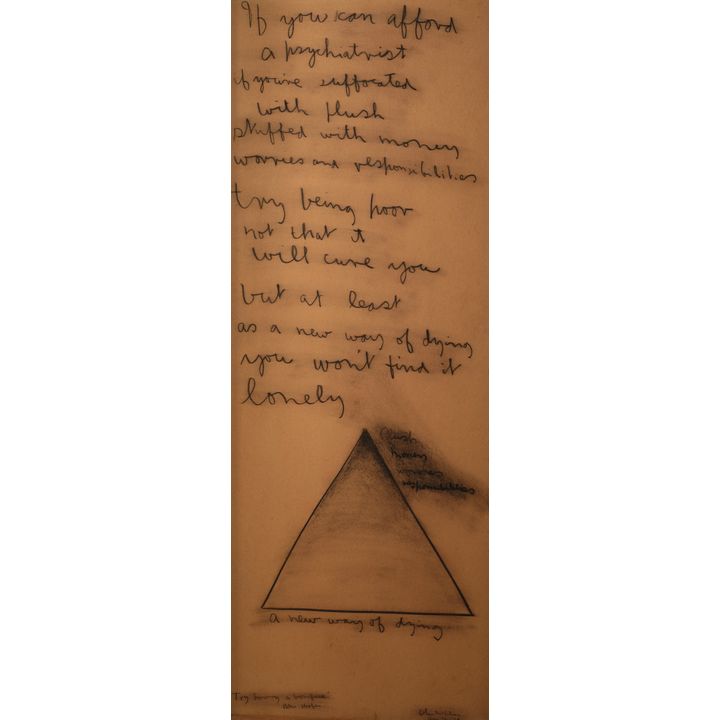 If you can afford
a psychiatrist
if you're suffocated
with plush
stuffed with money
worries and responsibilities
try being poor
not that it
will cure you
but at least
as a new way of dying
you won't find it
lonely
plush
money
worries
responsibilities
a new way of dying
Try